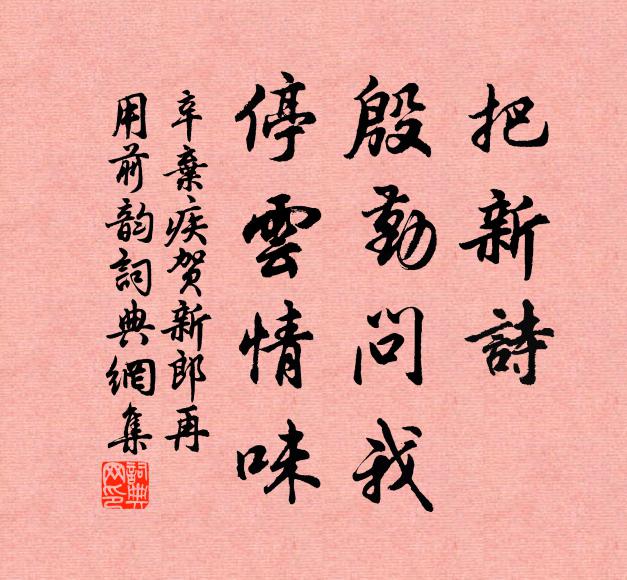 把新詩
殷勤問我
停雲情味
辛棄疾賀新郎再
用前韵詞典網集
詞典网印